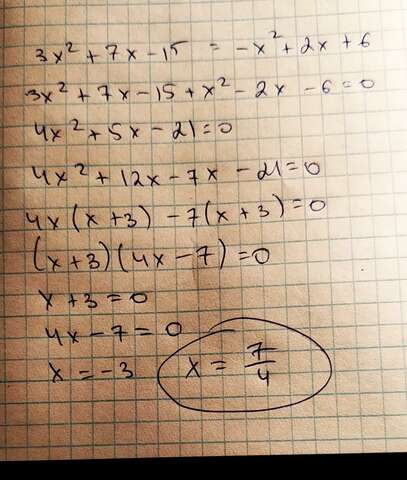 3x² + 7x - 15 = -x² + 2x + 6
3x² + 7x - 15 + x² - 2x - 6 = 0
4x² + 5x - 21 = 0
4x² + 12x - 7x - 21 = 0
4x(x + 3) - 7(x + 3) = 0
(x + 3)(4x - 7) = 0
x + 3 = 0
4x - 7 = 0
x = -3 x = 7/4